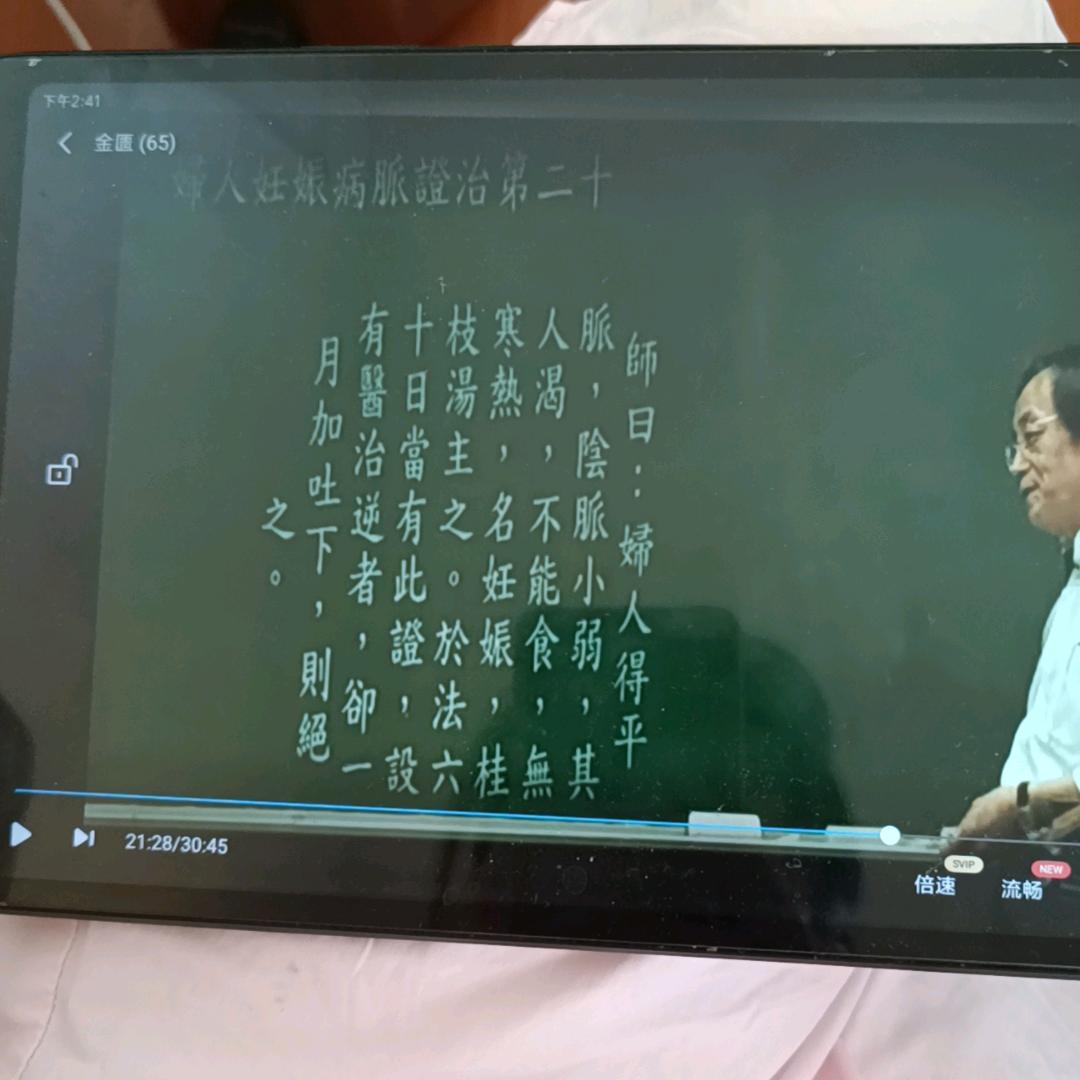 下午2:41
金匱 (65)
婦人妊娠病脈證治第二十
師曰：婦人得平
脈，陰脈小弱，其
人渴，不能食，無
寒熱，名妊娠，桂
枝湯主之。於法六
十日當有此證，設
有醫治逆者，卻一
月加吐下，則絕
之。
21:28/30:45
SVIP
倍速
NEW
流畅